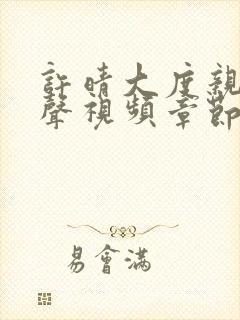 許晴大度親
聲視頻章節
易會滿